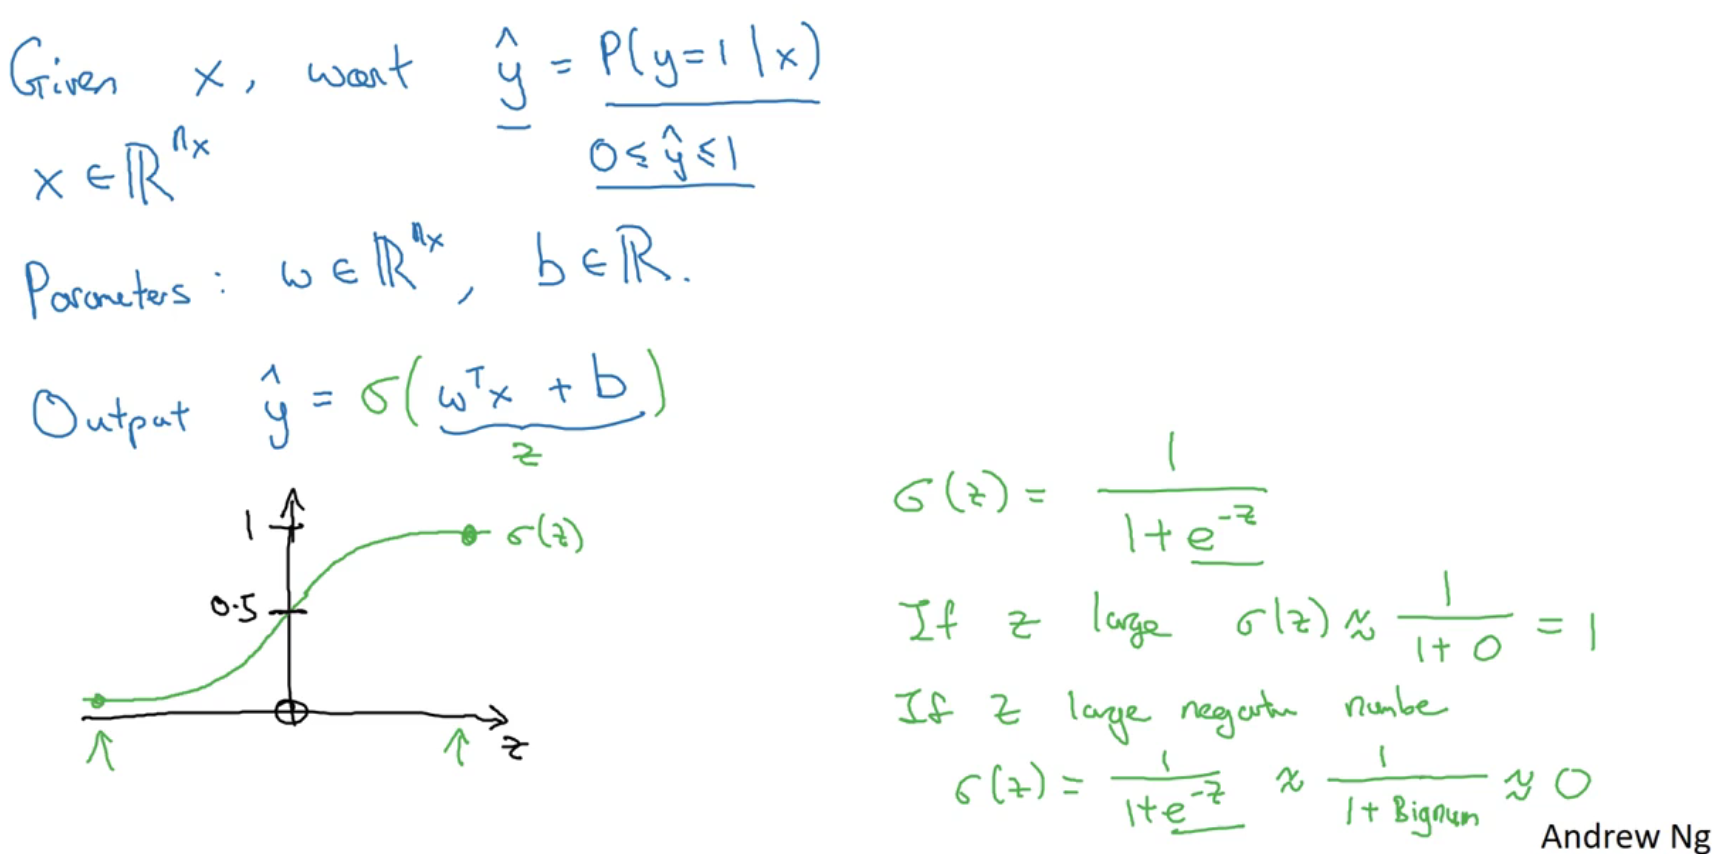 Given x, want ŷ = P(y=1|x)
x ∈ ℝⁿˣ 0 ≤ ŷ ≤ 1
Parameters: w ∈ ℝⁿˣ, b ∈ ℝ.
Output ŷ = σ(wᵀx + b)
z
1
σ(z)
0.5
z
σ(z) = 1 / (1 + e^(-z))
If z large σ(z) ≈ 1 / (1 + 0) = 1
If z large negativ numbe
σ(z) = 1 / (1 + e^(-z)) ≈ 1 / (1 + Bignum) ≈ 0
Andrew Ng